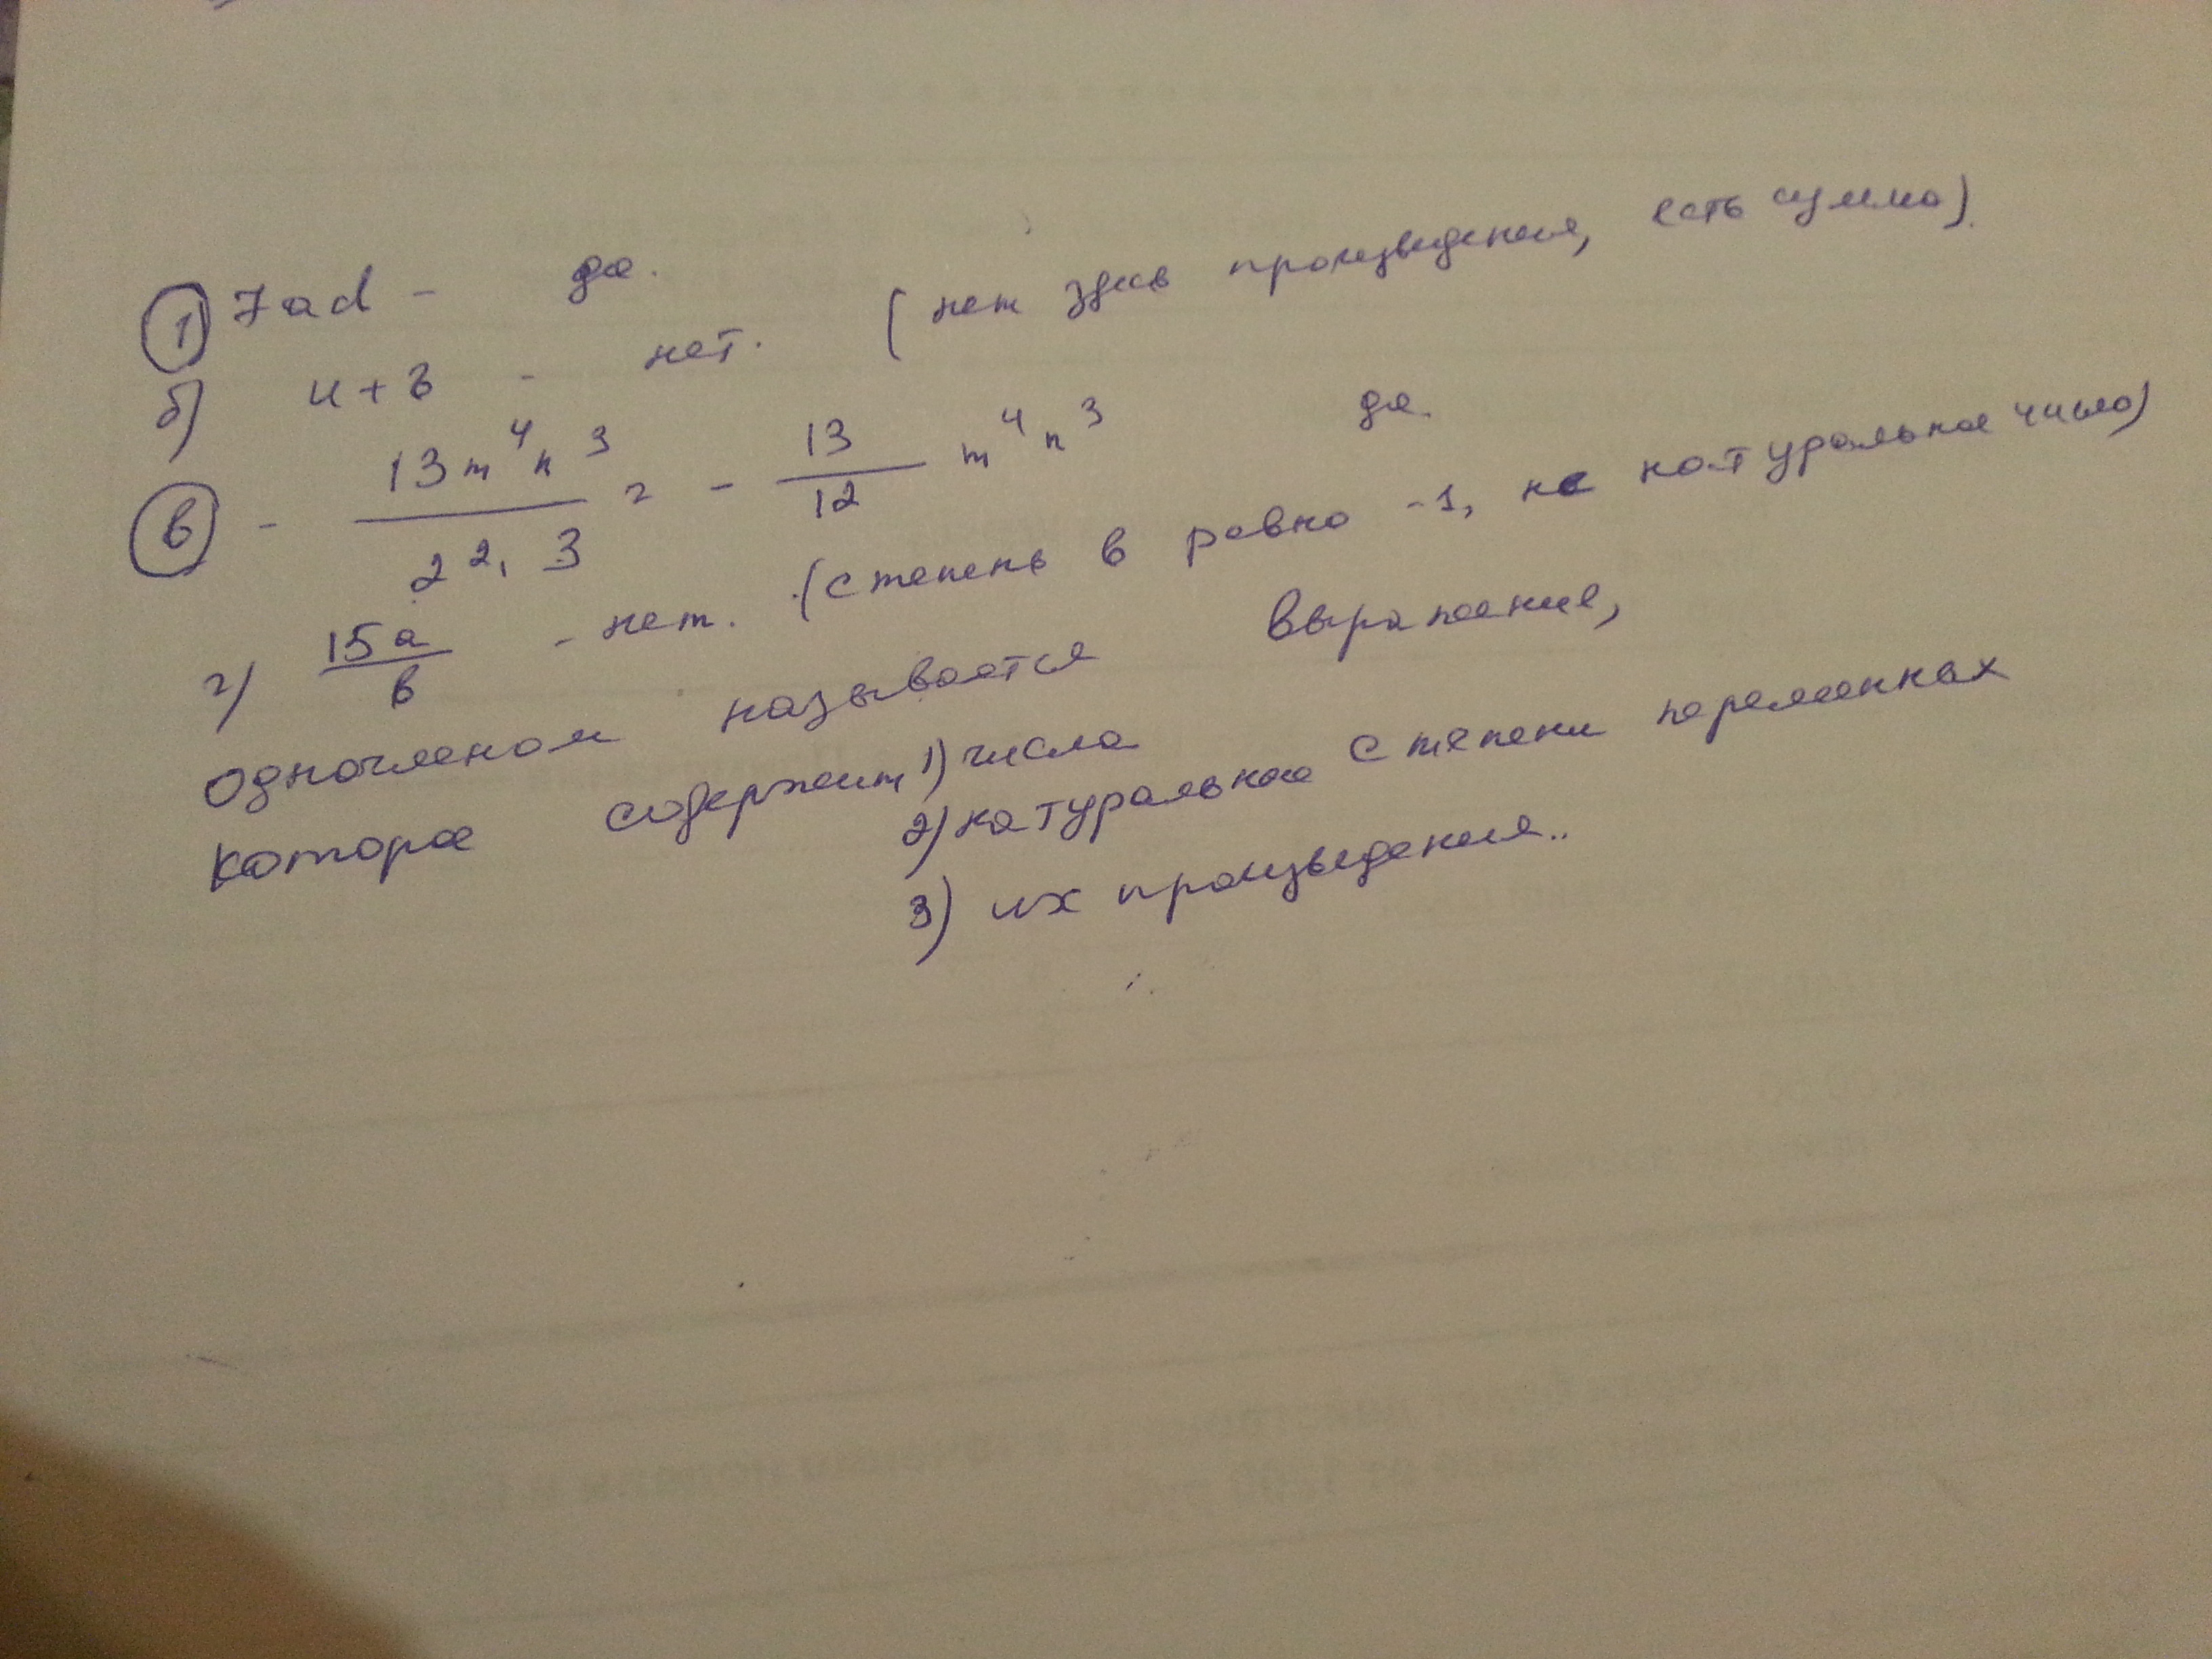 1) 7ad - да.
б) u+в - нет. (нет здесь произведения, есть сумма).
в) - 13m⁴n³/2²·3 = - 13/12 m⁴n³ да.
г) 15a/b - нет. (степень в равно -1, не натуральное число)
Одночленом называется выражение,
которое содержит 1) числа
2) натуральные степени переменных
3) их произведения..